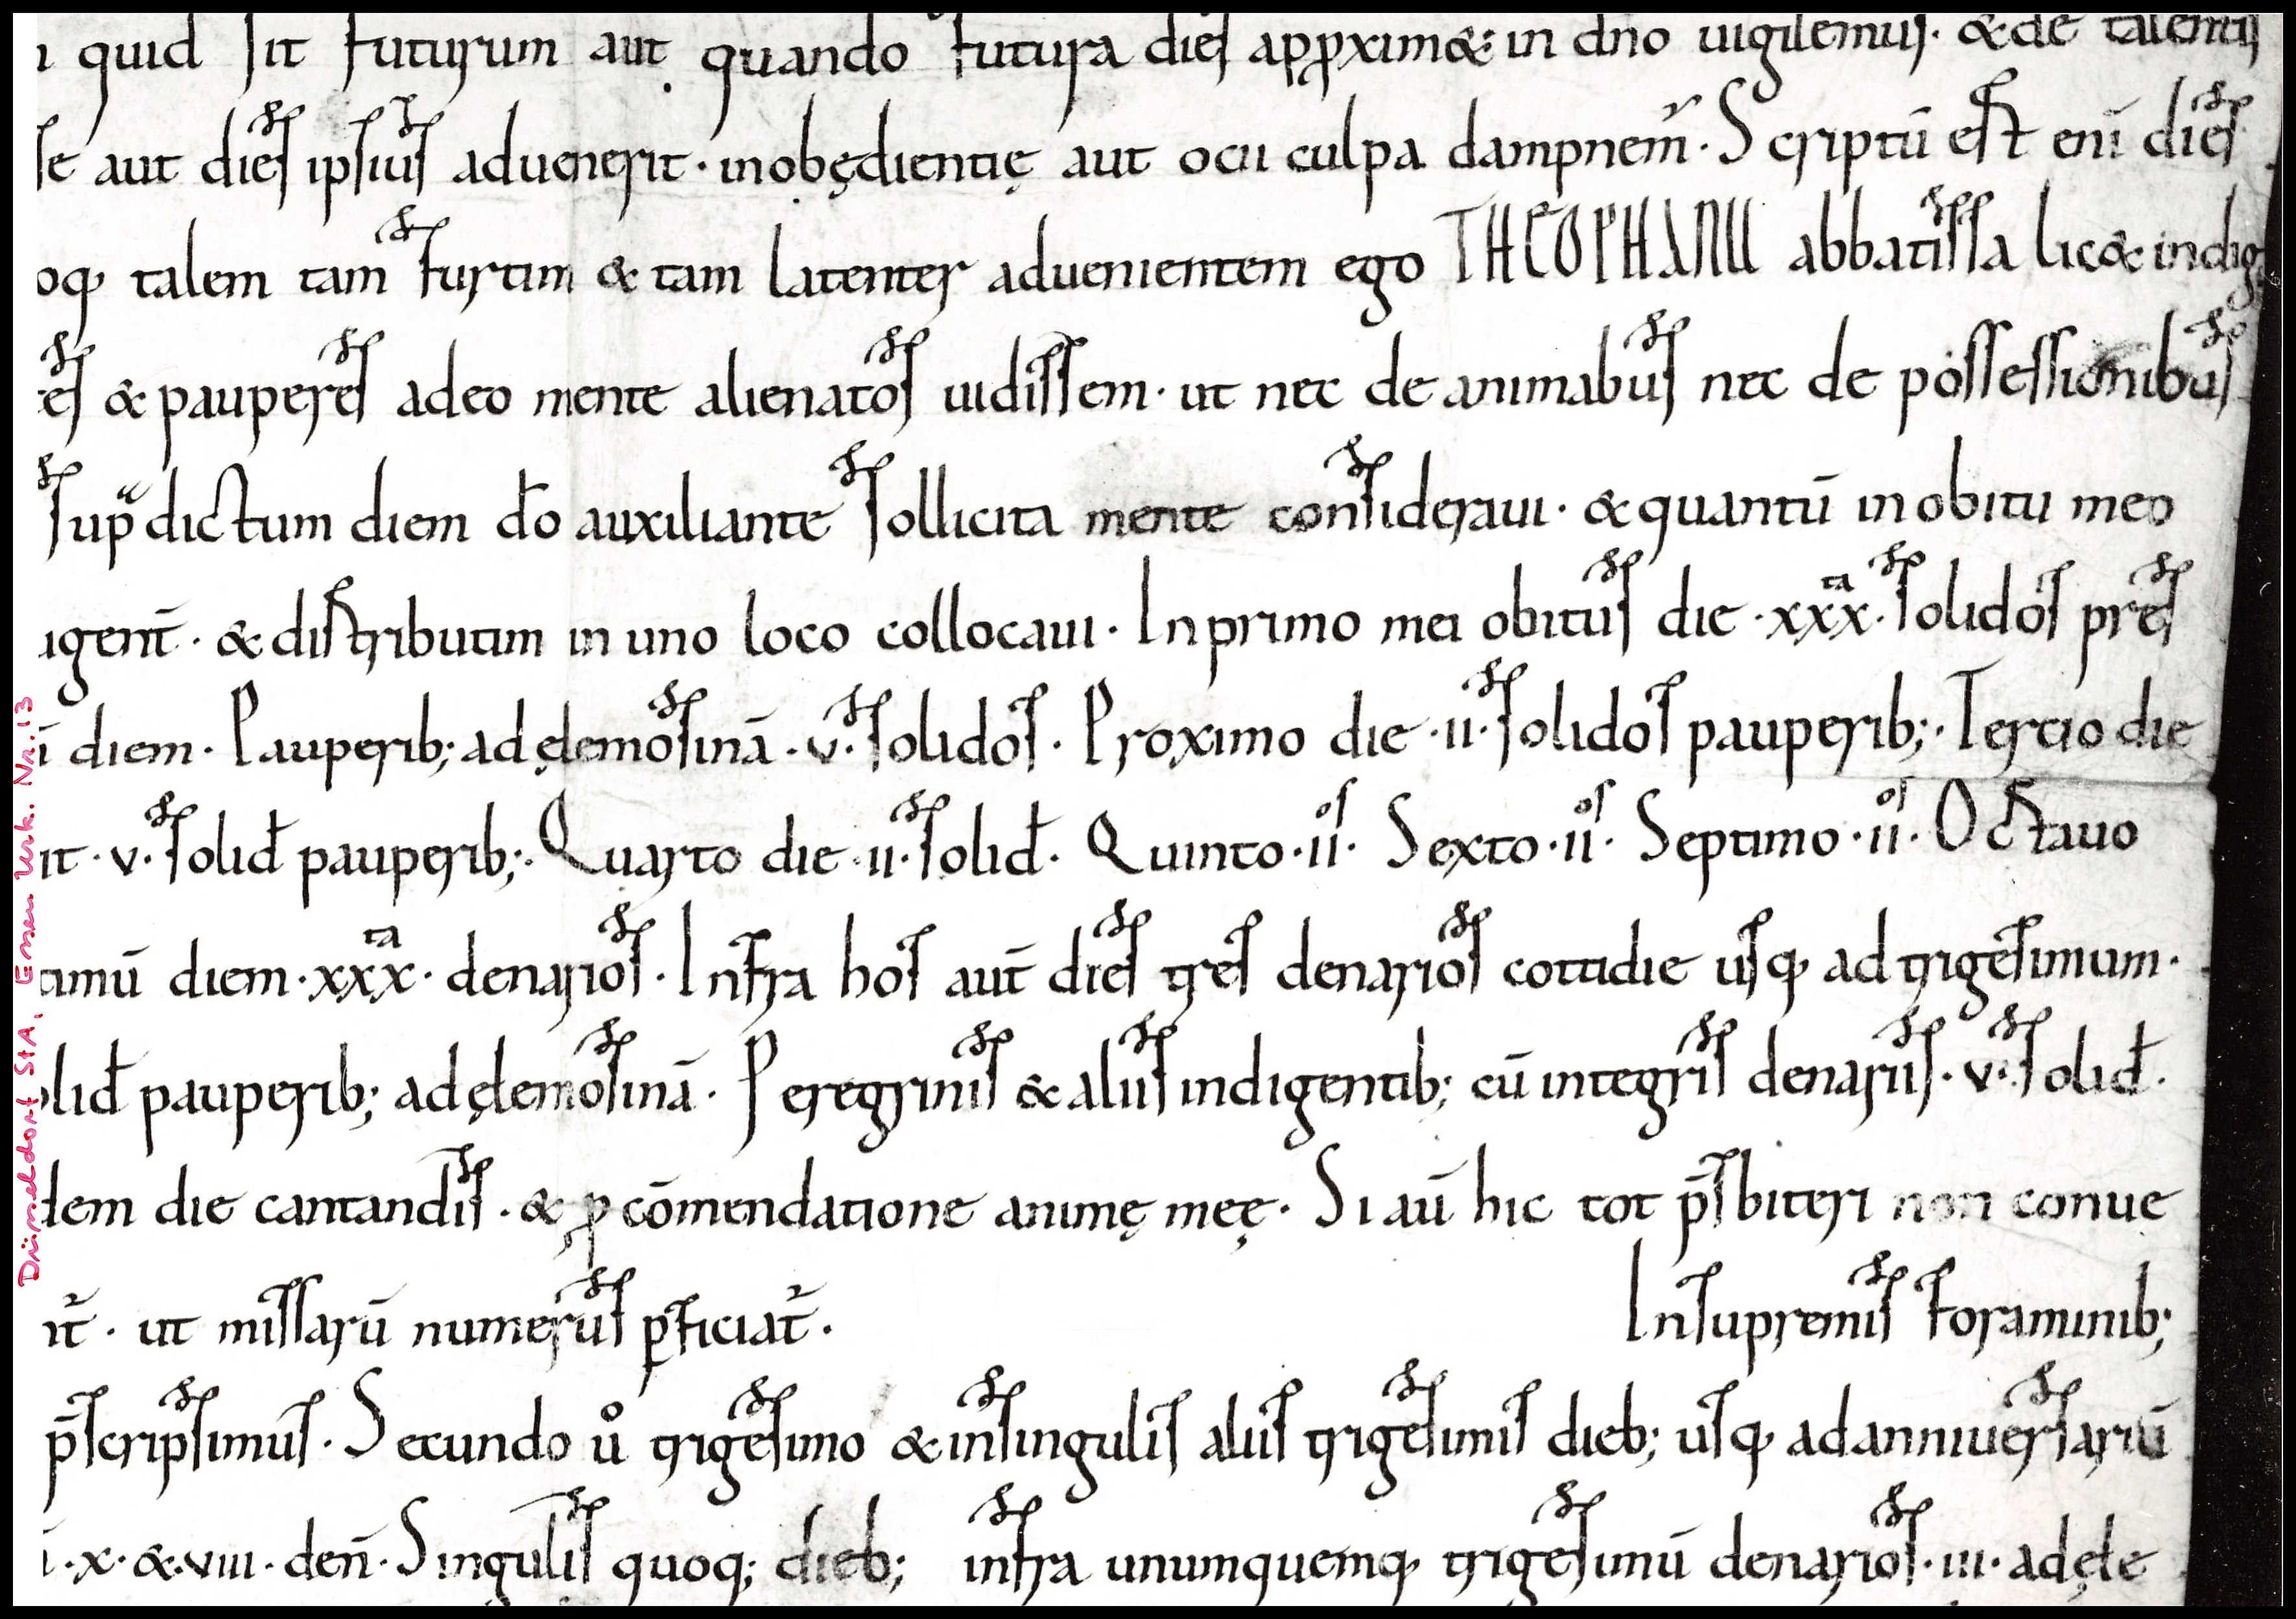 quid sit futurum aut quando futura dies appxim&; in dño uigilemus· & de talentis
se aut dies ipsius aduenerit· inobędientię aut ocii culpa dampnem̃· Scriptū est enī dies
oq; talem tam furtim & tam latenter aduenientem ego THEOPHANU abbatissa lic& indig
es & pauperes adeo mente alienatos uidissem· ut nec de animabus nec de possessionibus
sup̃dictum diem dō auxiliante sollicita mente consideraui· & quantū in obitu meo
igent̄· & distributim in uno loco collocaui· In primo mei obitus die ·xxx^ta· solidos pres
ī diem· Pauperib; ad ęlemosinā ·v· solidos· Proximo die ·ii· solidos pauperib;· Tercio die
it ·v· solid̄ pauperib;· Quarto die ·ii· solid̄· Quinto ·ii^os· Sexto ·ii^os· Septimo ·ii^os· Octauo
imū diem ·xxx^ta· denarios· Infra hos aut̄ dies tres denarios cottidie usq; ad trigesimum·
olid̄ pauperib; ad ęlemosinā· Peregrinis & aliis indigentib; cū integris denariis ·v· solid̄·
dem die cantandis· & ꝓ cōmendatione animę meę· Si aū hic tot p̄sbiteri non conue
it̃· ut missarū numerus ꝑficiat̃· In supremis foraminib;
p̄scripsimus· Secundo ů trigesimo & in singulis aliis trigesimis dieb; usq; ad anniuersariū
·x· & ·viii· den̄· Singulis quoq; dieb; infra unumquemq; trigesimū denarios ·iii· ad ęle
Düsseldorf StA, Essen Urk. Nr. 13